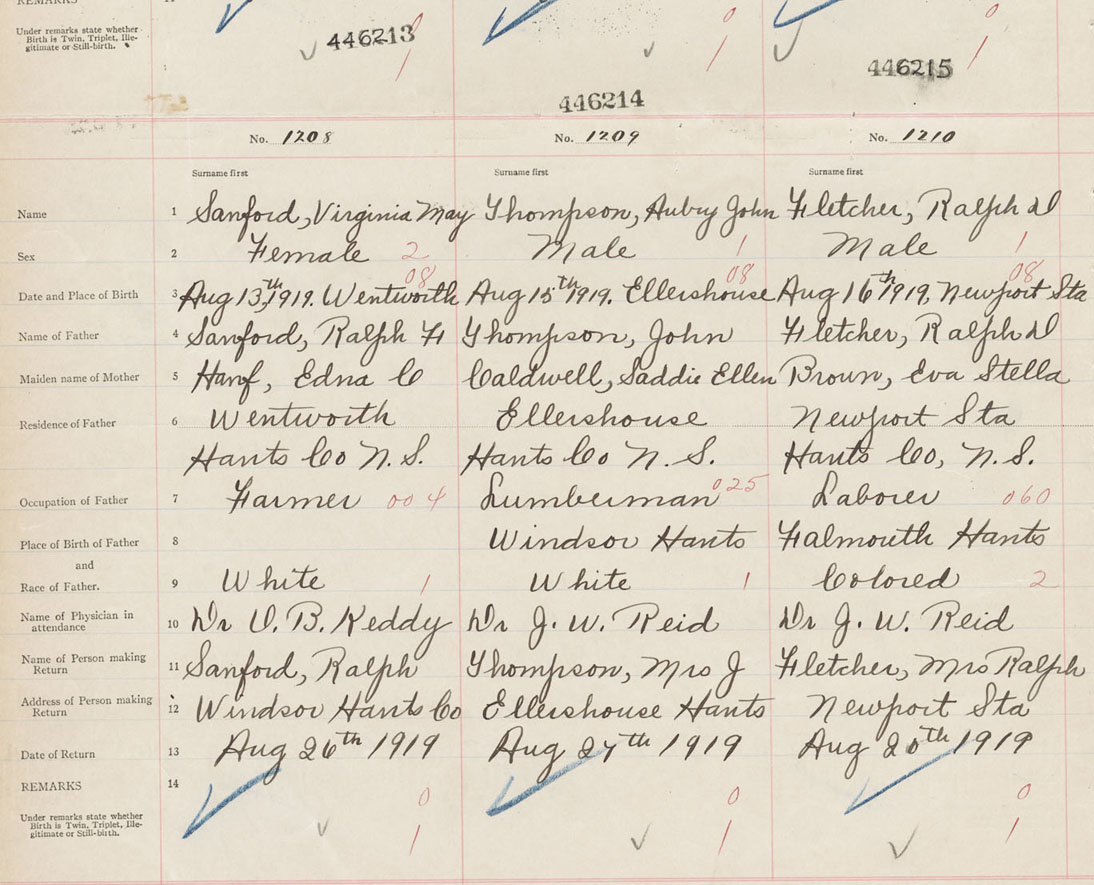 REMARKS
Under remarks state whether
Birth is Twin, Triplet, Ille-
gitimate or Still-birth.
446213 0 0
1 1 1
446215
446214
No. 1208 No. 1209 No. 1210
Surname first Surname first Surname first
Name 1 Sanford, Virginia May Thompson, Aubry John Fletcher, Ralph
Sex 2 Female 2 Male 1 Male 1
08 08 08
Date and Place of Birth 3 Aug 13th, 1919. Wentworth Aug 15th 1919. Ellershouse Aug 16th 1919, Newport Sta
Name of Father 4 Sanford, Ralph H Thompson, John Fletcher, Ralph
Maiden name of Mother 5 Edna C Caldwell, Saddie Ellen Brown, Eva Stella
Residence of Father 6 Wentworth Ellershouse Newport Sta
Hants Co N. S. Hants Co N. S. Hants Co, N. S.
Occupation of Father 7 Farmer 004 Lumberman 025 Laborer 060
Place of Birth of Father 8 Windsor Hants Falmouth Hants
and
Race of Father. 9 White 1 White 1 Colored 2
Name of Physician in
attendance 10 Dr O. B. Keddy Dr J. W. Reid Dr J. W. Reid
Name of Person making
Return 11 Sanford, Ralph Thompson, Mrs J Fletcher, Mrs Ralph
Address of Person making
Return 12 Windsor Hants Co Ellershouse Hants Newport Sta
Date of Return 13 Aug 26th 1919 Aug 27th 1919 Aug 20th 1919
REMARKS 14
Under remarks state whether
Birth is Twin, Triplet, Ille-
gitimate or Still-birth.
0 0 0
1 1 1